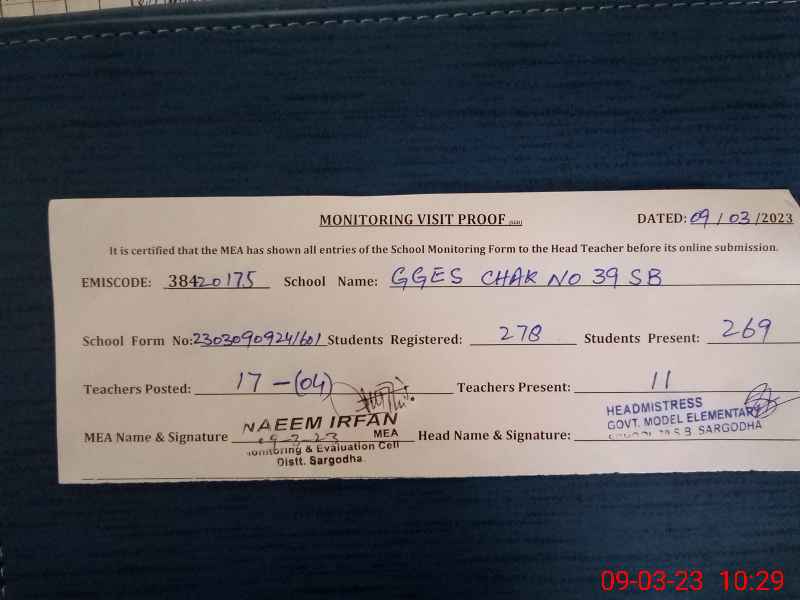 MONITORING VISIT PROOF
DATED: 09 / 03 /2023
It is certified that the MEA has shown all entries of the School Monitoring Form to the Head Teacher before its online submission.
EMISCODE: 38420175 School Name: GGES CHAK NO 39 SB
School Form No: 2303090924/601 Students Registered: 278 Students Present: 269
Teachers Posted: 17 - (04) Teachers Present: 11
MEA Name & Signature
NAEEM IRFAN
MEA
09-3-23
Monitoring & Evaluation Cell
Distt. Sargodha.
Head Name & Signature:
HEADMISTRESS
GOVT. MODEL ELEMENTARY
S.B. SARGODHA
09-03-23 10:29